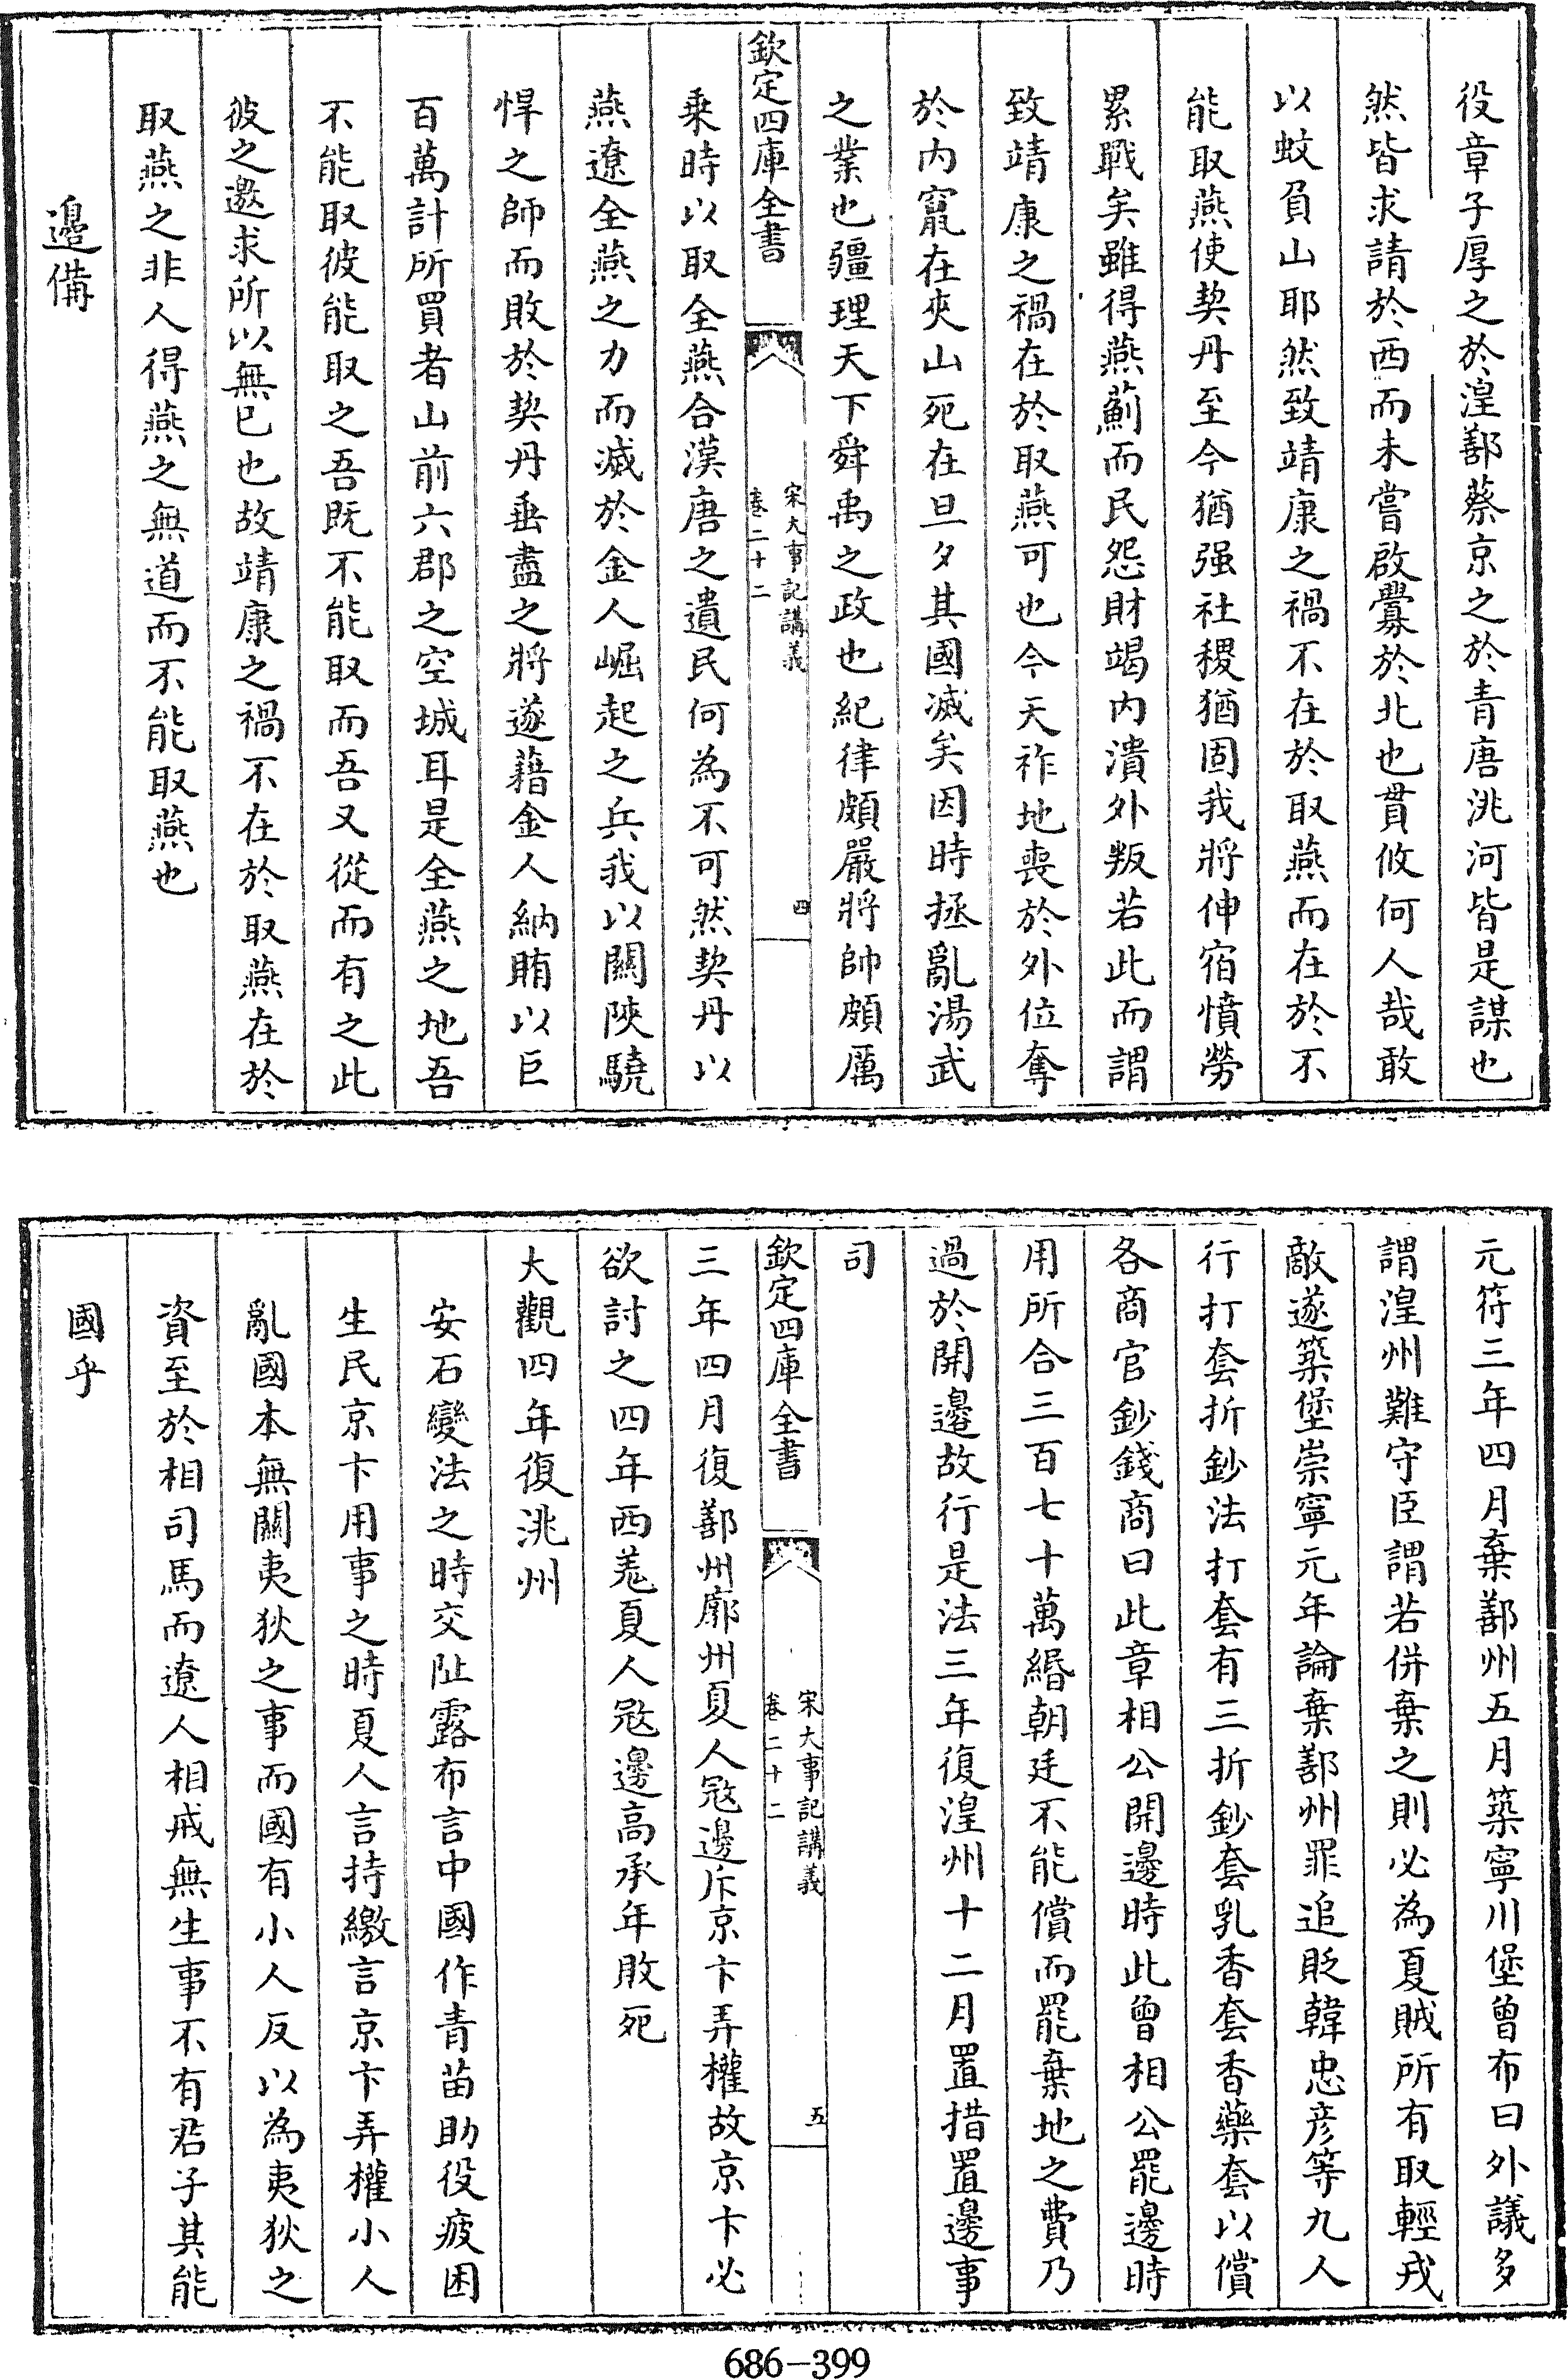 役章子厚之於湟鄯蔡京之於青唐洮河皆是謀也
然皆求請於西而未嘗啟釁於北也貫攸何人哉敢
以蚊負山耶然致靖康之禍不在於取燕而在於不
能取燕使契丹至今猶强社稷猶固我將伸宿憤勞
累戰矣雖得燕薊而民怨財竭内潰外叛若此而謂
致靖康之禍在於取燕可也今天祚地喪於外位奪
於内竄在夾山死在旦夕其國滅矣因時拯亂湯武
之業也疆理天下舜禹之政也紀律頗嚴將帥頗厲
欽定四庫全書
宋大事記講義
卷二十二
四
乗時以取全燕合漢唐之遺民何為不可然契丹以
燕遼全燕之力而滅於金人崛起之兵我以關陜驍
悍之師而敗於契丹垂盡之將遂藉金人納賄以巨
百萬計所買者山前六郡之空城耳是全燕之地吾
不能取彼能取之吾既不能取而吾又從而有之此
彼之邀求所以無已也故靖康之禍不在於取燕在於
取燕之非人得燕之無道而不能取燕也
邊備
元符三年四月棄鄯州五月築寧川堡曾布曰外議多
謂湟州難守臣謂若併棄之則必為夏賊所有取輕戎
敵遂築堡崇寧元年論棄鄯州罪追貶韓忠彦等九人
行打套折鈔法打套有三折鈔套乳香套香藥套以償
各商官鈔錢商曰此章相公開邊時此曾相公罷邊時
用所合三百七十萬緡朝廷不能償而罷棄地之費乃
過於開邊故行是法三年復湟州十二月置措置邊事
司
欽定四庫全書
宋大事記講義
卷二十二
五
三年四月復鄯州廓州夏人宼邊斥京卞弄權故京卞必
欲討之四年西羗夏人宼邊高承年敗死
大觀四年復洮州
安石變法之時交阯露布言中國作青苗助役疲困
生民京卞用事之時夏人言持繳言京卞弄權小人
亂國本無關夷狄之事而國有小人反以為夷狄之
資至於相司馬而遼人相戒無生事不有君子其能
國乎
686-399